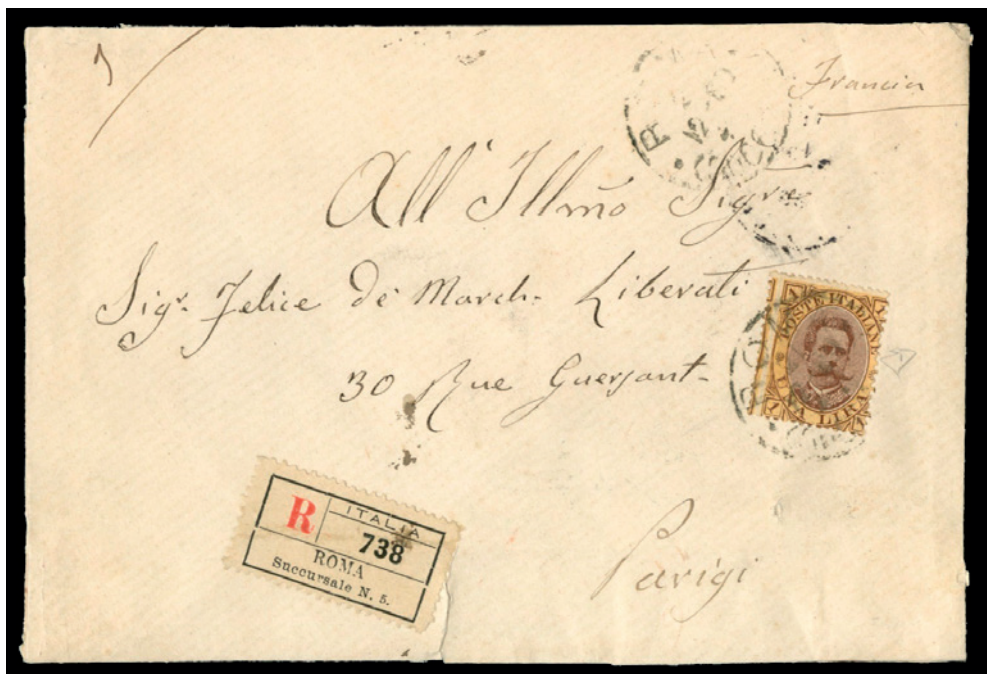 Francia
All' Illmo Sigre
Sigr. Felice de March. Liberati
30 Rue Guersant
Parigi
POSTE ITALIANE
UNA LIRA
R
ITALIA
738
ROMA
Succursale N. 5.